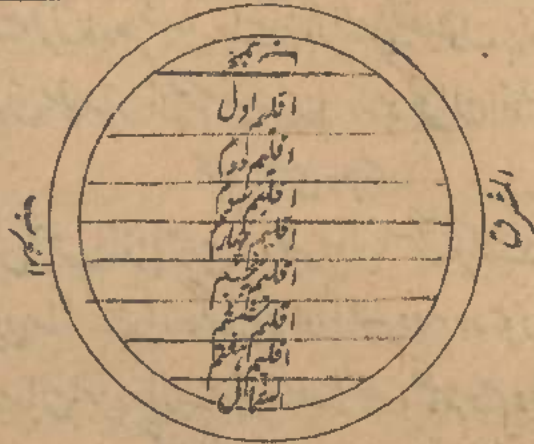 اقلیم اول
اقلیم دوم
اقلیم سوم
اقلیم چهار
اقلیم پنجم
اقلیم ششم
اقلیم هفتم
الشمال
الشرق